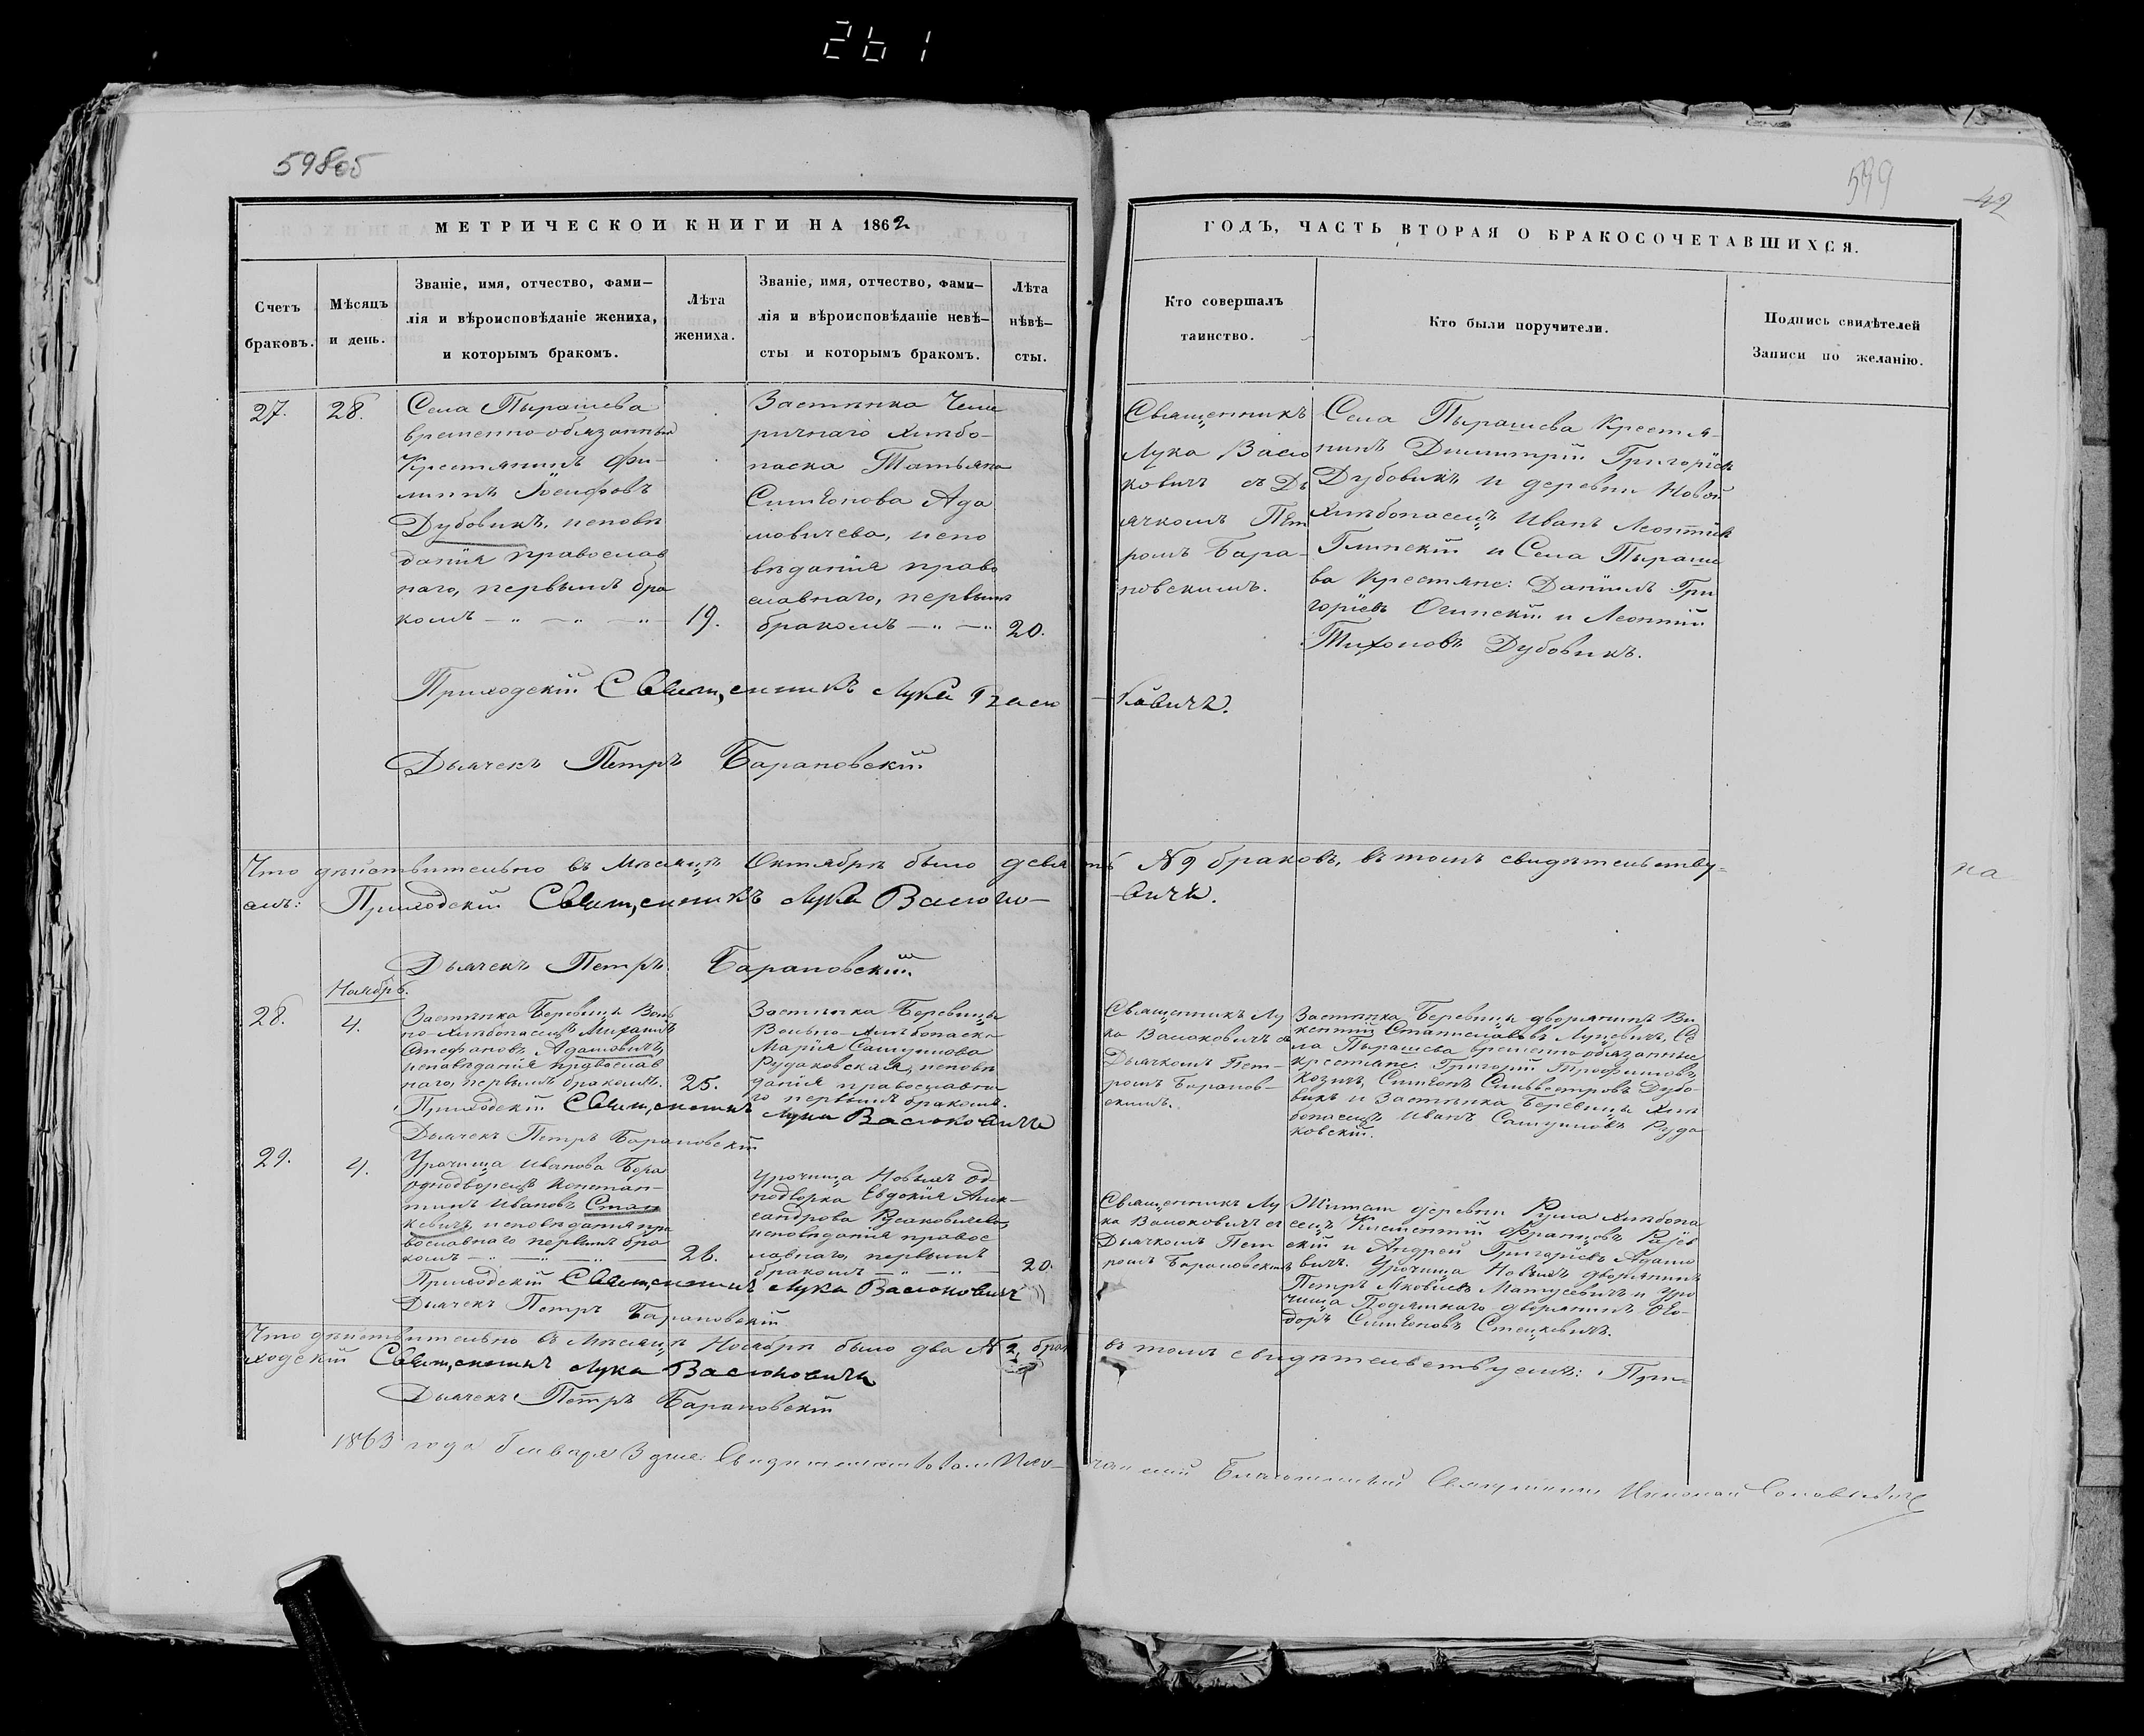 261
598об
599
42
МЕТРИЧЕСКОЙ КНИГИ НА 1862
ГОДЪ, ЧАСТЬ ВТОРАЯ О БРАКОСОЧЕТАВШИХСЯ.
Счетъ
браковъ.
Мѣсяцъ
и день.
Званіе, имя, отчество, фами–
лія и вѣроисповѣданіе жениха,
и которымъ бракомъ.
Лѣта
жениха.
Званіе, имя, отчество, фами–
лія и вѣроисповѣданіе невѣ–
сты и которымъ бракомъ.
Лѣта
нѣвѣ–
сты.
Кто совершалъ
таинство.
Кто были поручители.
Подпись свидѣтелей
Записи по желанію.
27.
28.
Села Пырашева
временно-обязанный
Крестянинъ Фи-
липпъ Іосифовъ
Дубовикъ, исповѣ
данія православ
наго, первымъ бра
комъ
19.
Застѣнка
хлѣбо-
паска Татьяна
Симѣонова Ада
мовичева, испо
вѣданія право
славнаго, первым
бракомъ
20.
Священникъ
Лука Васю
ковичъ съ Дь
ячкомъ Пет
ромъ Бара-
новскимъ.
Села Пырашева Крестья-
нинъ Димитрій Григоріев
Дубовикъ и деревни Новой
хлѣбопашецъ Иванъ Леонтіев
Глинскій и Села Пыраше
ва Крестяне: Даніилъ Гри
горіевъ Огинскій и Леонтій
Тихоновъ Дубовикъ.
Приходскій Священникъ Лука Васю
ковичъ.
Дьячекъ Петръ Барановскій
Что дѣйствительно въ Мѣсяцѣ Октябрѣ было девять № 9 браковъ, въ томъ свидѣтельству-
емъ: Приходскій Священникъ Лука Васюко-
вичъ.
на
Дьячекъ Петръ Барановскій
Ноябрь.
28.
4.
Застѣнка Беревицы Воль
но-хлѣбопашецъ Михаилъ
Стефановъ Адамовичъ,
исповѣданія православ
наго, первымъ бракомъ.
25.
Застѣнка Беревицы
Вольно-хлѣбопаска
Марія Самуилова
Рудаковская, исповѣ
данія православна
го первымъ бракомъ.
Священникъ Лу
ка Васюковичъ съ
Дьячкомъ Пет-
ромъ Баранов-
скимъ.
Застѣнка Беревицы дворянинъ Ви
кентій Станиславовъ Луцевичъ, Се
ла Пырашева временно-обязанные
крестяне: Григорій Трофимовъ
Козичъ, Симѣонъ Сильвестровъ Дубо-
викъ и Застѣнка Беревицы хлѣ
бопашецъ Иванъ Самуиловъ Руда
ковскій.
Приходскій Священникъ Лука Васюковичъ
Дьячекъ Петръ Барановскій
29.
4.
Урочища Иванова Бора
однодворецъ Констан-
тинъ Ивановъ Стан
кевичъ исповѣданія пра
вославнаго первымъ бра
комъ
26.
Урочища Новыхъ од-
нодворка Евдокія Алек-
сандрова Русаковичева,
исповѣданія правос
лавнаго, первымъ
бракомъ
20.
Священникъ Лу
ка Васюковичъ съ
Дьячкомъ Пет
ромъ Барановскимъ
Житель деревни хлѣбопа
шецъ Климентій Францовъ
скій и Андрей Григорьевъ Адамо
вичъ. Урочища Новыхъ дворянинъ
Петръ Яковлевъ Матусевичъ и Уро
чища дворянинъ Ѳео-
доръ Симѣоновъ Стецкевичъ.
Приходскій Священникъ Лука Васюковичъ
Дьячекъ Петръ Барановскій
Что дѣйствительно въ Мѣсяцѣ Ноябрѣ было два № 2, брак
въ томъ свидѣтельствуемъ: При-
ходскій Священникъ Лука Васюковичъ
Дьячекъ Петръ Барановскій
1863 года Генваря 3 дня Свидѣтельствовалъ
Благочинный Священникъ Николай